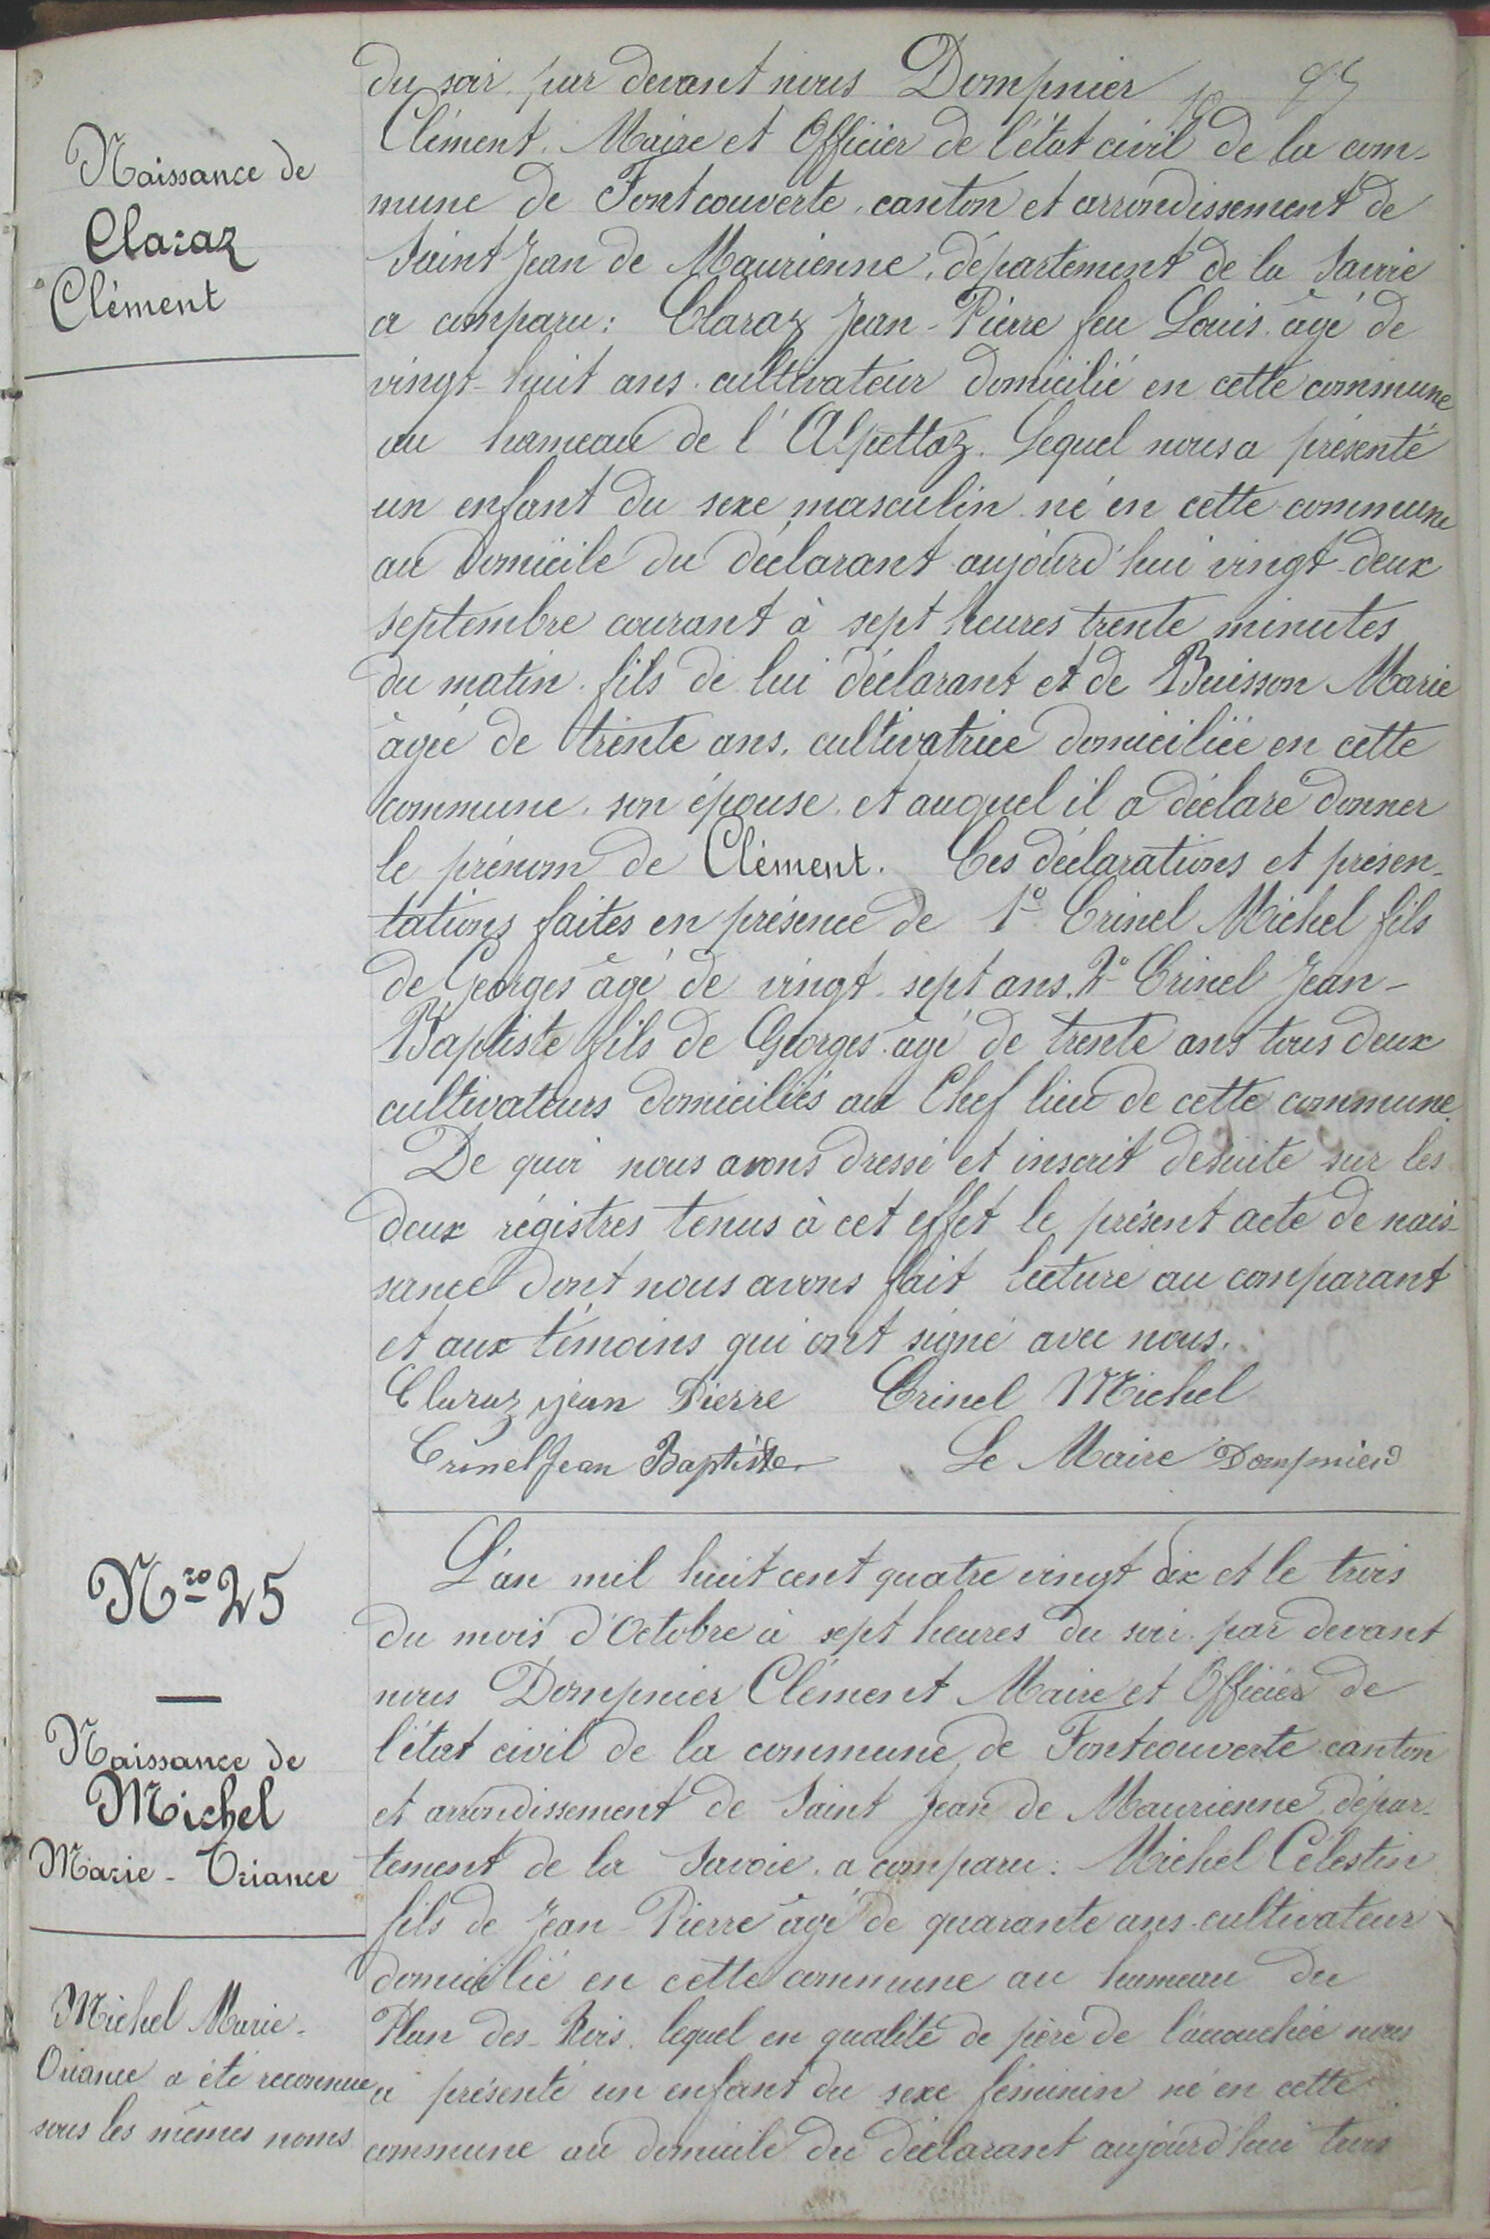 du soir, par devant nous Dompnier
Naissance de
Claraz
Clément
Clément, Maire et Officier de l'état civil de la com-
mune de Fontcouverte, canton et arrondissement de
Saint Jean de Maurienne, département de la Savoie
a comparu: Claraz Jean-Pierre feu Louis âgé de
vingt-huit ans, cultivateur domicilié en cette commune
au hameau de l'Alpettaz. Lequel nous a présenté
un enfant du sexe masculin né en cette commune
au domicile du déclarant aujourd'hui vingt-deux
septembre courant à sept heures trente minutes
du matin, fils de lui déclarant et de Buisson Marie
âgée de trente ans, cultivatrice domiciliée en cette
commune, son épouse, et auquel il a déclaré donner
le prénom de Clément. Ces déclarations et présen-
tations faites en présence de 1º Crinel Michel fils
de Georges âgé de vingt-sept ans, 2º Crinel Jean-
Baptiste fils de Georges âgé de trente ans tous deux
cultivateurs domiciliés au Chef lieu de cette commune.
De quoi nous avons dressé et inscrit desuite sur les
deux régistres tenus à cet effet le présent acte de nais-
sance dont nous avons fait lecture au comparant
et aux témoins qui ont signé avec nous.
Claraz jean Pierre Crinel Michel
Crinel Jean Baptiste Le Maire Dompnier
Nro 25
Naissance de
Michel
Marie-Oriance
Michel Marie-
Oriance a été reconnue
sous les mêmes noms
L'an mil huit cent quatre vingt dix et le trois
du mois d'Octobre à sept heures du soir, par devant
nous Dompnier Clément Maire et Officier de
l'état civil de la commune de Fontcouverte canton
et arrondissement de Saint Jean de Maurienne, dépar-
tement de la Savoie, a comparu: Michel Célestin
fils de Jean-Pierre âgé de quarante ans, cultivateur
domicilié en cette commune au hameau du
Plan des-Rois, lequel en qualité de père de l'accouchée nous
a présenté un enfant du sexe féminin né en cette
commune au domicile du déclarant aujourd'hui trois